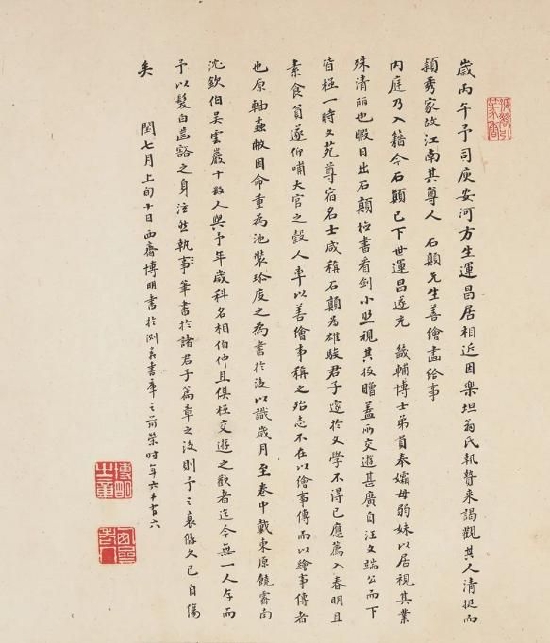 歲丙午予司庾安河方生運昌居相近因樂坦翁氏執贄來謁觀其人清挺而
穎秀家故江南其尊人 石顛先生善繪畵給事
内庭乃入籍今石顛已下世運昌遂充 畿輔博士弟員奉孀母弱妹以居視其業
殊清麗也暇日出石顛檢書看劍小照視其投贈蓋所交遊甚廣自汪文端公而下
皆極一時文苑尊宿名士咸稱石顛為雄駿君子邃於文學不得已應薦入春明且
素食貧遂仰嘯大官之穀人率以善繪事稱之殆志不在以繪事傳而以繪事傳者
也原軸蠹敝因命重為池裝珍庋之為書於後以識歲月至卷中戴東原饒霽南
沈欽伯吳雲巖十數人與予年歲科名相伯仲且俱極交遊之歡者迄今無一人存而
予以髮白齒豁之身泫然執事筆書於諸君子篇章之後則予之衰憊久已自傷
矣 閏七月上旬十日西齋博明書於洌泉書之前榮時年六十有六